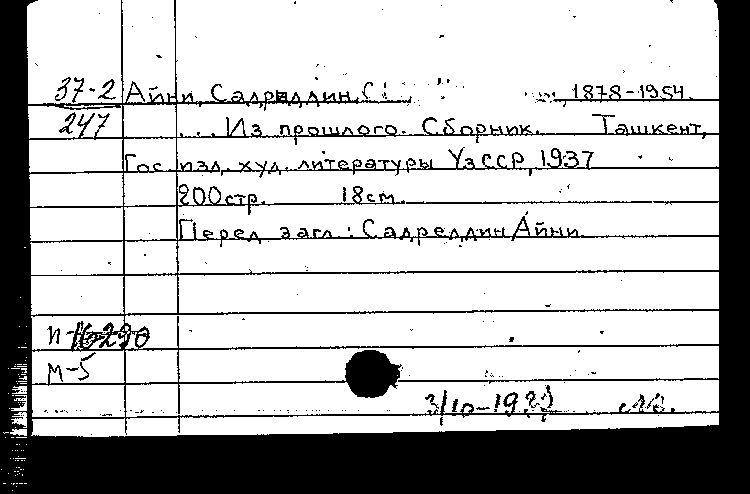 37-2 Айни, Садриддин, 1878-1954.
247 ... Из прошлого. Сборник. Ташкент,
Гос. изд. худ. литературы УзССР, 1937
200 стр. 18 см.
Перед загл.: Садреддин Айни.
М-5